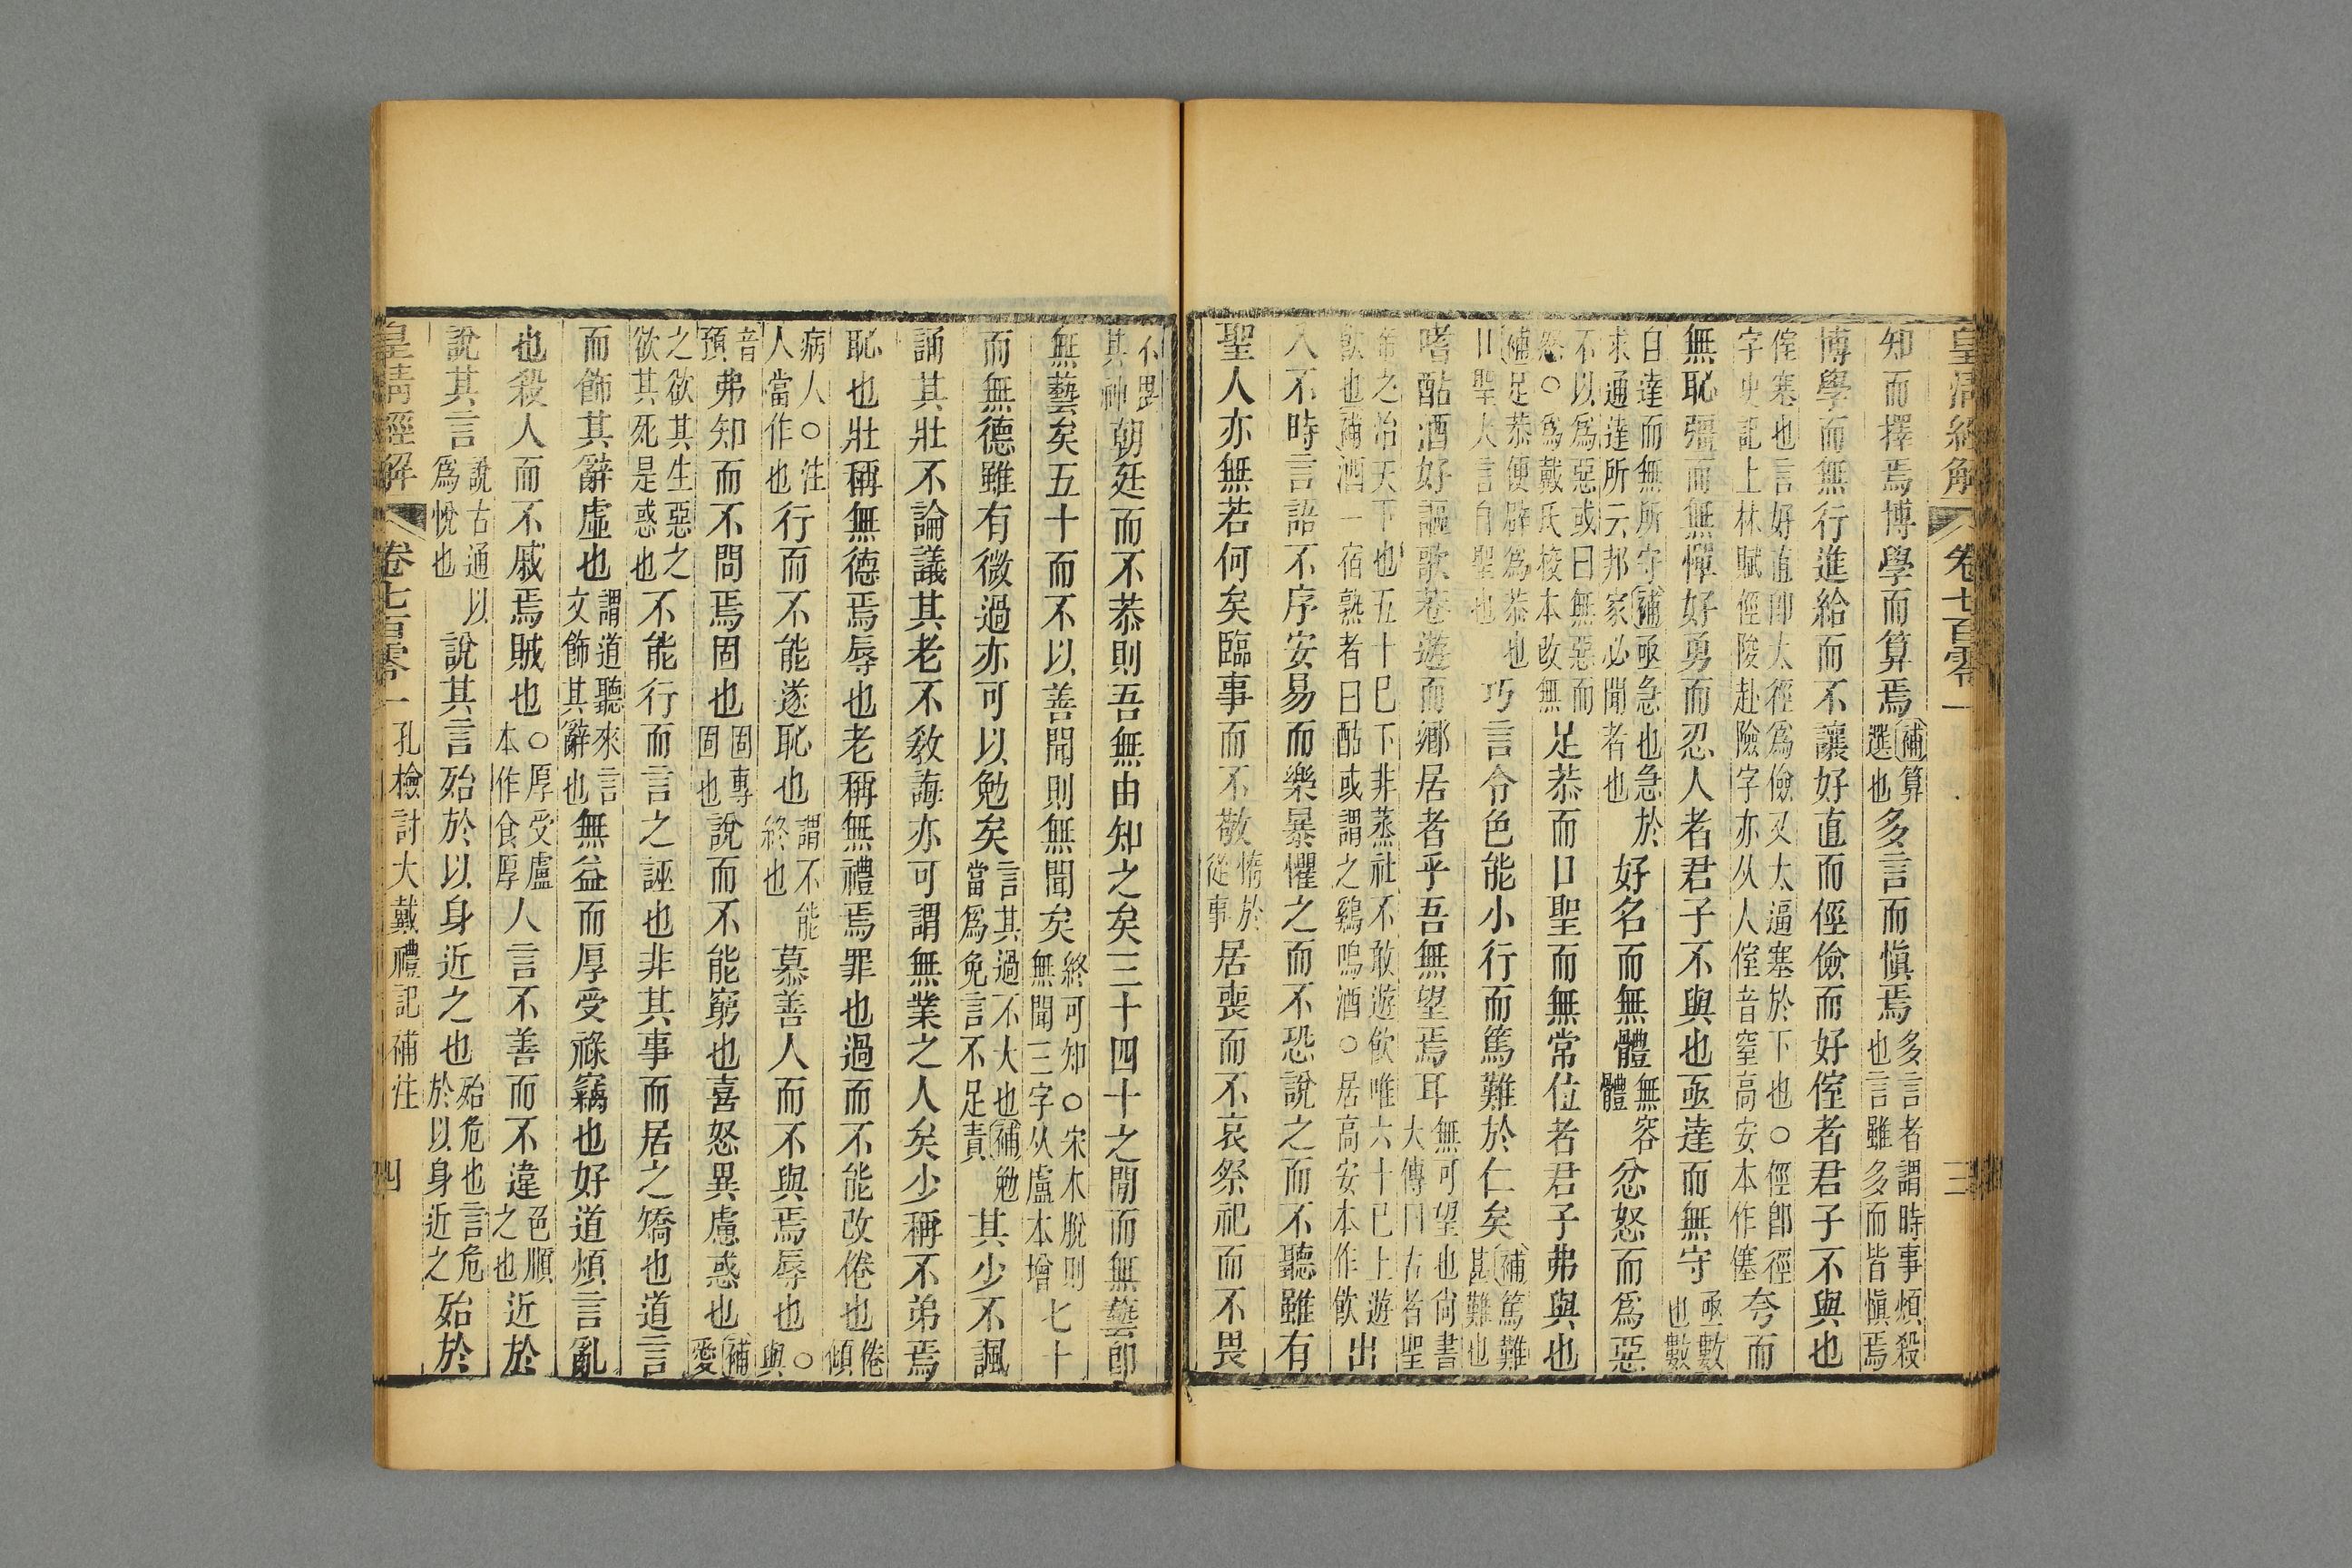 皇清經解 卷七百零一 三
知而擇焉博學而算焉補算選也多言而愼焉多言者謂時事煩殺也言雖多而皆愼焉
博學而無行進給而不讓好直而俓儉而好𠊷者君子不與也
𠊷塞也言好直卽太徑爲儉又太逼塞於下也○俓卽徑字史記上林賦俓陵赴險字亦从人𠊷音窒高安本作僿夸而
無恥彊而無憚好勇而忍人者君子不與也亟達而無守亟數也數
自達而無所守補亟急也急於求通達所云邦家必聞者也好名而無體無容體忿怒而爲惡
不以爲惡或曰無惡而怒○爲戴氏校本改無足恭而口聖而無常位者君子弗與也
補足恭便辟爲恭也口聖人言自聖也巧言令色能小行而篤難於仁矣補篤難甚難也
嗜酤酒好謳歌巷遊而鄉居者乎吾無望焉耳無可望也尚書大傳曰古者聖
帝之治天下也五十巳下非蒸社不敢遊飲唯六十巳上遊飲也補酒一宿孰者曰酤或謂之鷄鳴酒○居高安本作飲出
入不時言語不序安易而樂暴懼之而不恐說之而不聽雖有
聖人亦無若何矣臨事而不敬惰於從事居喪而不哀祭祀而不畏
不畏其神朝廷而不恭則吾無由知之矣三十四十之閒而無藝卽
無藝矣五十而不以善聞則無聞矣終可知○宋本脫則無聞三字从盧本增七十
而無德雖有微過亦可以勉矣言其過不大也補勉當爲免言不足責其少不諷
誦其壯不論議其老不敎誨亦可謂無業之人矣少稱不弟焉
恥也壯稱無德焉辱也老稱無禮焉罪也過而不能改倦也倦傾
病人○注人當作也行而不能遂恥也謂不能終也慕善人而不與焉辱也○與
音預弗知而不問焉固也固專固也說而不能窮也喜怒異慮惑也補愛
之欲其生惡之欲其死是惑也不能行而言之誣也非其事而居之矯也道言
而飾其辭虛也謂道聽來言文飾其辭也無益而厚受祿竊也好道煩言亂
也殺人而不戚焉賊也○厚受盧本作食厚人言不善而不違色順之也近於
說其言說古通以爲悅也說其言殆於以身近之也殆危也言危於以身近之殆於
皇清經解 卷七百零一 孔檢討大戴禮記補注 四